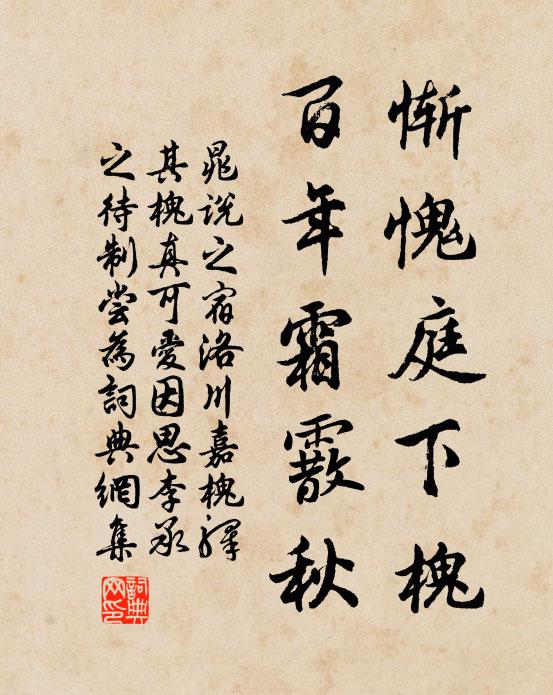 慚愧庭下槐
百年霜霰秋
晁說之宿洛川嘉槐驛
其槐真可愛因思李承
之待制嘗為詞典網集
詞典網印